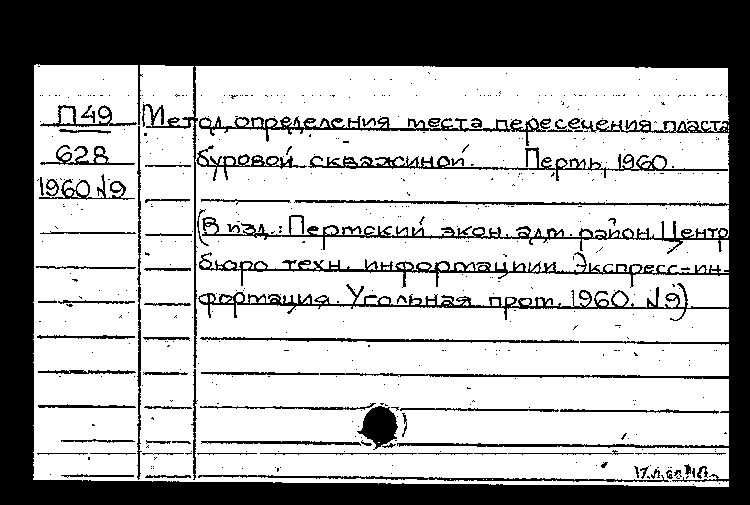 П49 Метод определения места пересечения пласта
628 буровой скважиной. Пермь, 1960.
1960 №9
(В изд.: Пермский экон. адм. район. Центр
бюро техн. информации. Экспресс-ин-
формация. Угольная пром. 1960. №9)